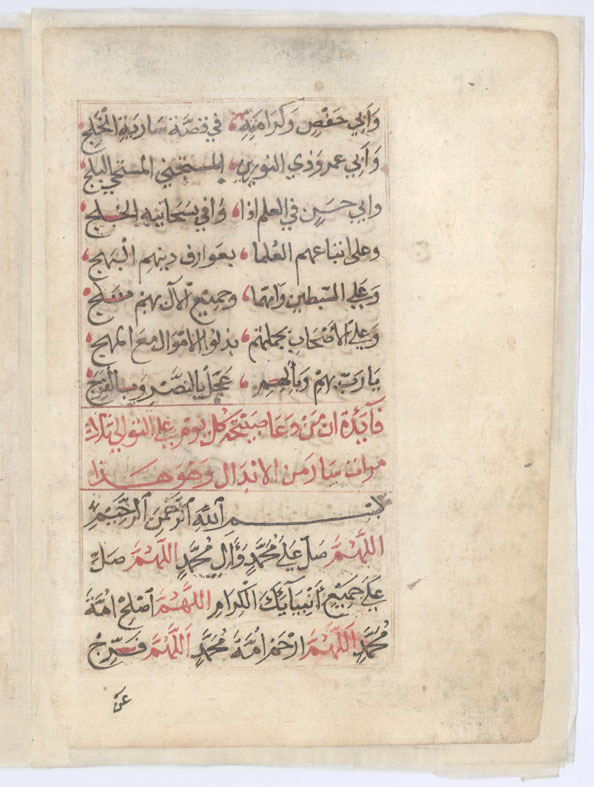 وَأبي حَفْصٍ وَكَرَامَتِهِ في قصّة سَارِيَةِ الخُلج
وَأبي عمرو ذي النورين المستحيي المستحي البلج
وابي حسَنٍ في العلم اذا وَافي بسَحائبه الخلج
وعلى اتباعهم العُلما بعَوارف دينهم البَهج
وَعلى السّبطين وَامّهما وجميع الآل بهم فلج
وَعلى الأصْحَابِ بجملتهم بذلوا الاموَال معَ المهج
يا رَبّ بهمْ وَبآلهم عَجّل بالنّصْر وبالفرَج
فَآيدة ان مَنْ دَعا صبيحَة كل يومٍ على التوالي ثلاث
مرات صَار مِن الابدَال وَهوَ هذا
بسم ٱللهِ ٱلرَّحْمَنِ ٱلرَّحِيمِ
اللّهمّ صَلّ عَلى محُمَّدٍ وَآل محُمَّدٍ اللّهمّ صَلِّ
عَلى جَميعِ أنبيَآئِكَ الكرام اللّهمَّ اصْلِحْ امّةَ
محُمَّدٍ اللّهمّ ارْحَمْ امّةَ محُمَّدٍ اللّهمّ فَرِّجْ
عَنْ